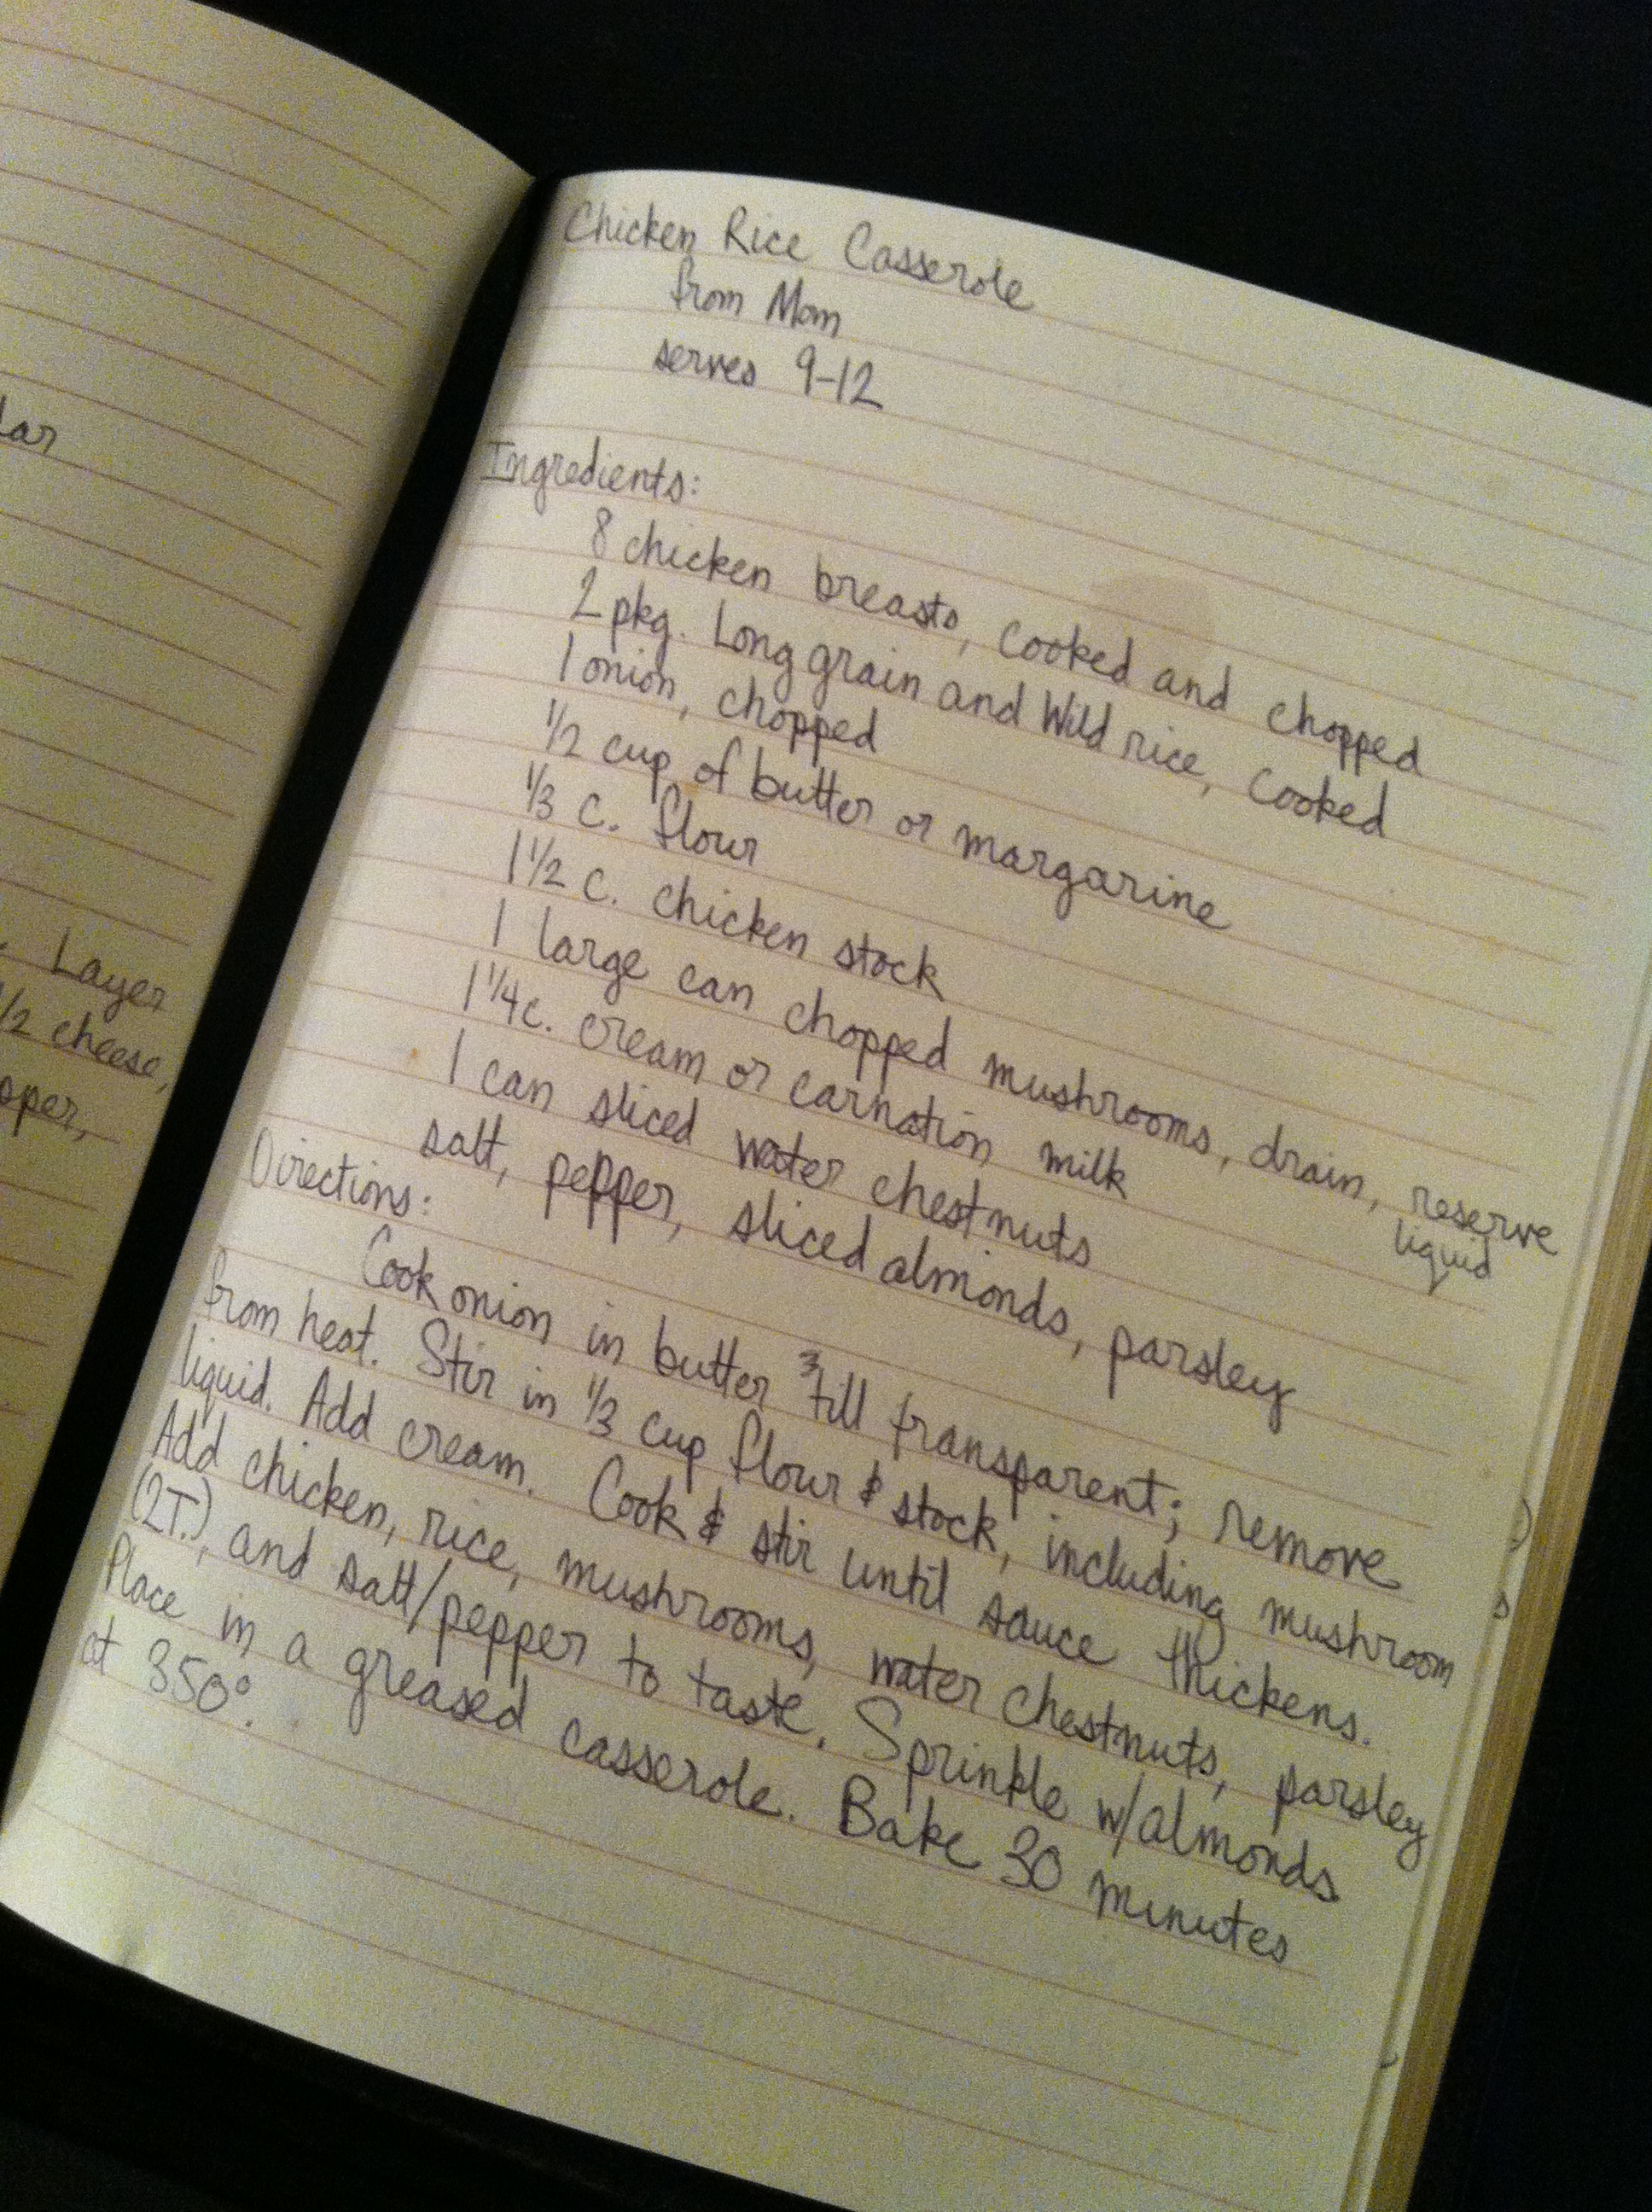 lar
Layer
1/2 cheese,
pper,
Chicken Rice Casserole
from Mom
serves 9-12
Ingredients:
8 chicken breasts, cooked and chopped
2 pkg. Long grain and Wild rice, cooked
1 onion, chopped
1/2 cup of butter or margarine
1/3 c. flour
1 1/2 c. chicken stock
1 large can chopped mushrooms, drain, reserve
liquid
1 1/4 c. cream or carnation milk
1 can sliced water chestnuts
salt, pepper, sliced almonds, parsley
Directions:
Cook onion in butter till transparent; remove
from heat. Stir in 1/3 cup flour & stock, including mushroom
liquid. Add cream. Cook & stir until sauce thickens.
Add chicken, rice, mushrooms, water chestnuts, parsley
(2T.), and salt/pepper to taste. Sprinkle w/almonds
Place in a greased casserole. Bake 30 minutes
at 350°.